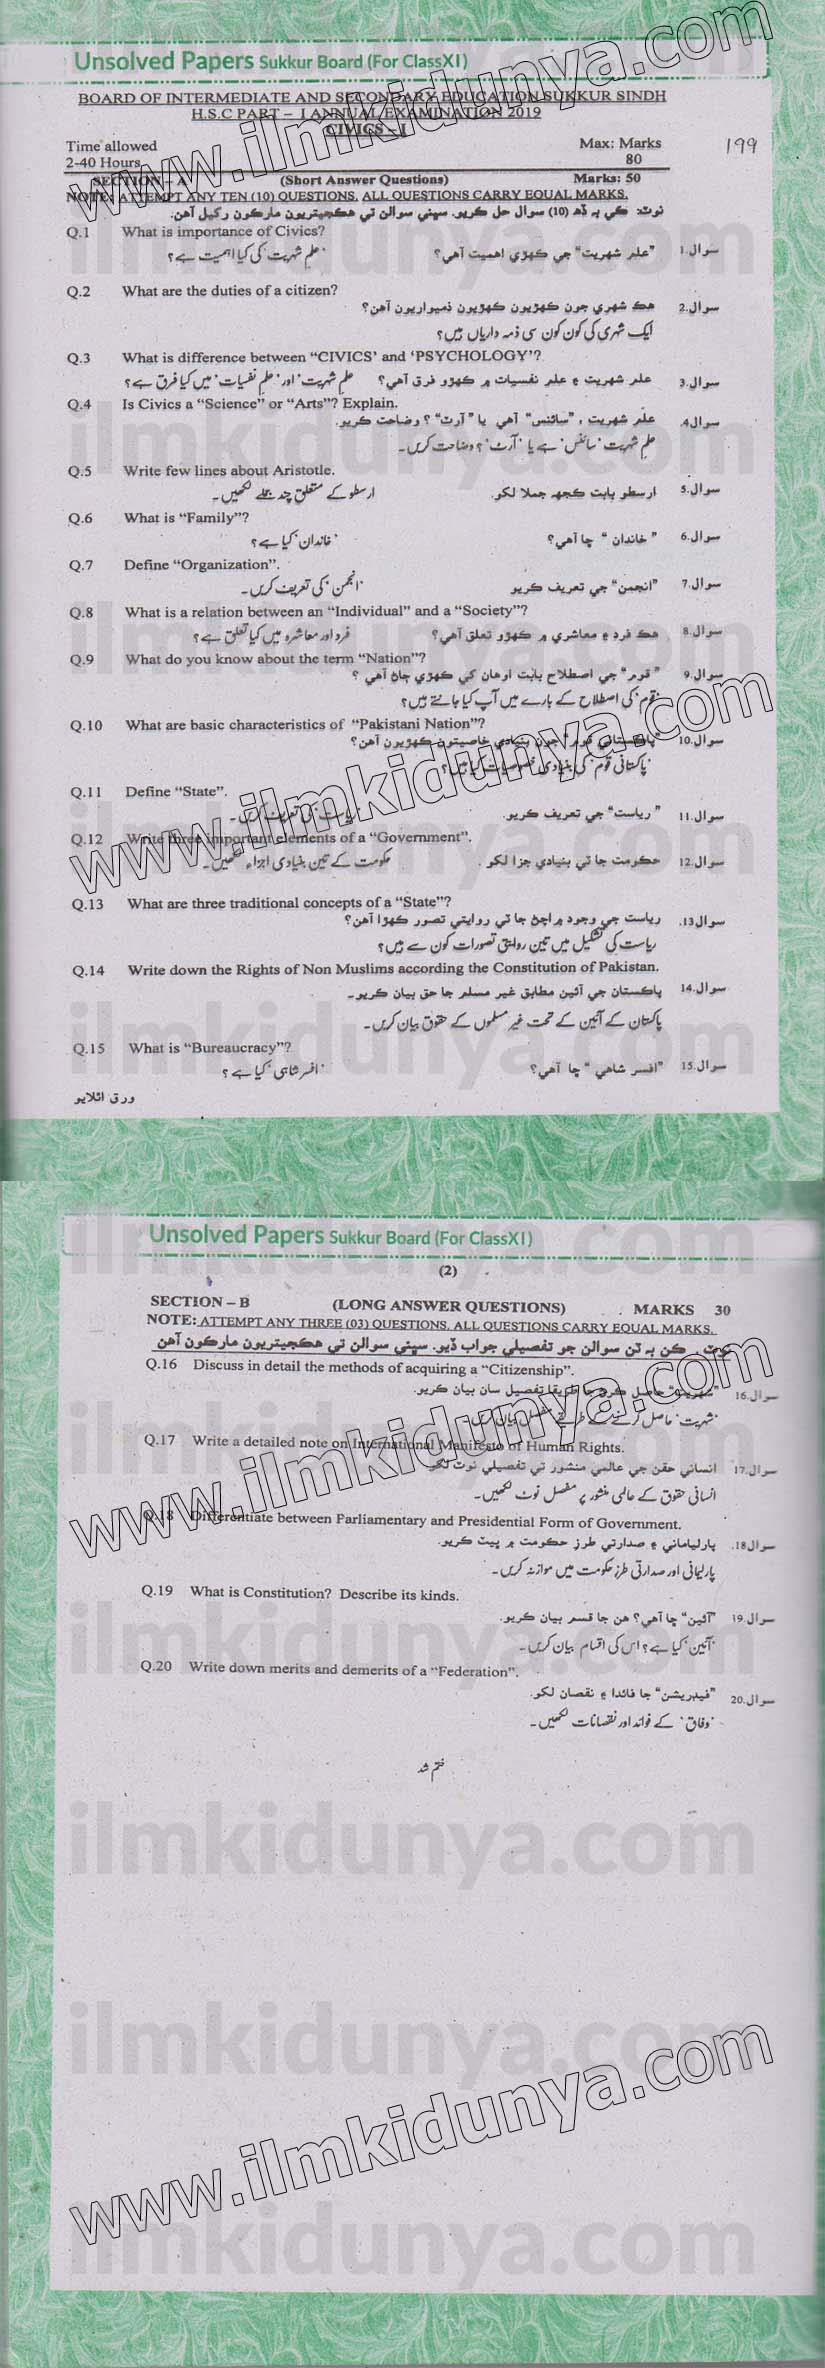 Unsolved Papers Sukkur Board (For ClassXI)
BOARD OF INTERMEDIATE AND SECONDARY EDUCATION SUKKUR SINDH
H.S.C PART – I ANNUAL EXAMINATION 2019
CIVICS – I
199
Time allowed
Max: Marks
2-40 Hours
80
SECTION – A (Short Answer Questions) Marks: 50
NOTE: ATTEMPT ANY TEN (10) QUESTIONS. ALL QUESTIONS CARRY EQUAL MARKS.
نوٽ: ڪي به ڏھ (10) سوال حل ڪريو. سڀني سوالن تي هڪجيتريون مارڪون رکيل آهن.
Q.1 What is importance of Civics?
سوال.1 ”علم شهريت“ جي ڪهڙي اهميت آهي؟
'علم شہریت' کی کیا اہمیت ہے؟
Q.2 What are the duties of a citizen?
سوال.2 هڪ شهري جون ڪهڙيون ڪهڙيون ذميواريون آهن؟
ایک شہری کی کون کون سی ذمہ داریاں ہیں؟
Q.3 What is difference between “CIVICS’ and ‘PSYCHOLOGY’?
سوال.3 علم شهريت ۽ علم نفسيات ۾ ڪهڙو فرق آهي؟
'علم شہریت' اور 'علم نفسیات' میں کیا فرق ہے؟
Q.4 Is Civics a “Science” or “Arts”? Explain.
سوال.4 علم شهريت ، ”سائنس“ آهي يا ”آرٽ“ ؟ وضاحت ڪريو.
علم شہریت 'سائنس' ہے یا 'آرٹ' ؟ وضاحت کریں۔
Q.5 Write few lines about Aristotle.
سوال.5 ارسطو بابت ڪجهه جملا لکو.
ارسطو کے متعلق چند جملے لکھیں۔
Q.6 What is “Family”?
سوال.6 ” خاندان “ ڇا آهي؟
'خاندان' کیا ہے؟
Q.7 Define “Organization”.
سوال.7 ”انجمن“ جي تعريف ڪريو
'انجمن' کی تعریف کریں۔
Q.8 What is a relation between an “Individual” and a “Society”?
سوال.8 هڪ فرد ۽ معاشري ۾ ڪهڙو تعلق آهي؟
فرد اور معاشرہ میں کیا تعلق ہے؟
Q.9 What do you know about the term “Nation”?
سوال.9 ” قوم“ جي اصطلاح بابت اوهان کي ڪهڙي ڄاڻ آهي ؟
'قوم' کی اصطلاح کے بارے میں آپ کیا جانتے ہیں؟
Q.10 What are basic characteristics of “Pakistani Nation”?
سوال.10 ”پاڪستاني قوم“ جون بنيادي خاصيتون ڪهڙيون آهن؟
'پاکستانی قوم' کی بنیادی خصوصیات کیا ہیں؟
Q.11 Define “State”.
سوال.11 ” رياست“ جي تعريف ڪريو.
'ریاست' کی تعریف کریں۔
Q.12 Write three important elements of a “Government”.
سوال.12 حڪومت جا ٽي بنيادي جزا لکو .
حکومت کے تین بنیادی اجزاء لکھیں۔
Q.13 What are three traditional concepts of a “State”?
سوال.13 رياست جي وجود ۾ اچڻ جا ٽي روايتي تصور ڪهڙا آهن؟
ریاست کی تشکیل میں تین روایتی تصورات کون سے ہیں؟
Q.14 Write down the Rights of Non Muslims according the Constitution of Pakistan.
سوال.14 پاڪستان جي آئين مطابق غير مسلم جا حق بيان ڪريو۔
پاکستان کے آئین کے تحت غیر مسلموں کے حقوق بیان کریں۔
Q.15 What is “Bureaucracy”?
سوال.15 ”افسر شاهي “ ڇا آهي؟
'افسر شاہی' کیا ہے ؟
ورق اٿلايو
Unsolved Papers Sukkur Board (For ClassXI)
(2)
SECTION – B (LONG ANSWER QUESTIONS) MARKS 30
NOTE: ATTEMPT ANY THREE (03) QUESTIONS. ALL QUESTIONS CARRY EQUAL MARKS.
نوٽ ڪن به ٽن سوالن جو تفصيلي جواب ڏيو. سڀني سوالن تي هڪجيتريون مارڪون آهن
Q.16 Discuss in detail the methods of acquiring a “Citizenship”.
سوال.16 ”شهريت“ حاصل ڪرڻ جا طريقا تفصيل سان بيان ڪريو.
'شہریت' حاصل کرنے کے طریقے مفصل بیان کریں۔
Q.17 Write a detailed note on International Manifesto of Human Rights.
سوال.17 انساني حقن جي عالمي منشور تي تفصيلي نوٽ لکو
انسانی حقوق کے عالمی منشور پر مفصل نوٹ لکھیں۔
Q.18 Differentiate between Parliamentary and Presidential Form of Government.
سوال.18 پارلياماني ۽ صدارتي طرز حڪومت ۾ ڀيٽ ڪريو.
پارلیمانی اور صدارتی طرز حکومت میں موازنہ کریں۔
Q.19 What is Constitution? Describe its kinds.
سوال.19 ”آئين“ ڇا آهي؟ هن جا قسم بيان ڪريو.
'آئین' کیا ہے؟ اس کی اقسام بیان کریں۔
Q.20 Write down merits and demerits of a “Federation”.
سوال.20 ”فيڊريشن“ جا فائدا ۽ نقصان لکو.
'وفاق' کے فوائد اور نقصانات لکھیں۔
ختم شد
www.ilmkidunya.com